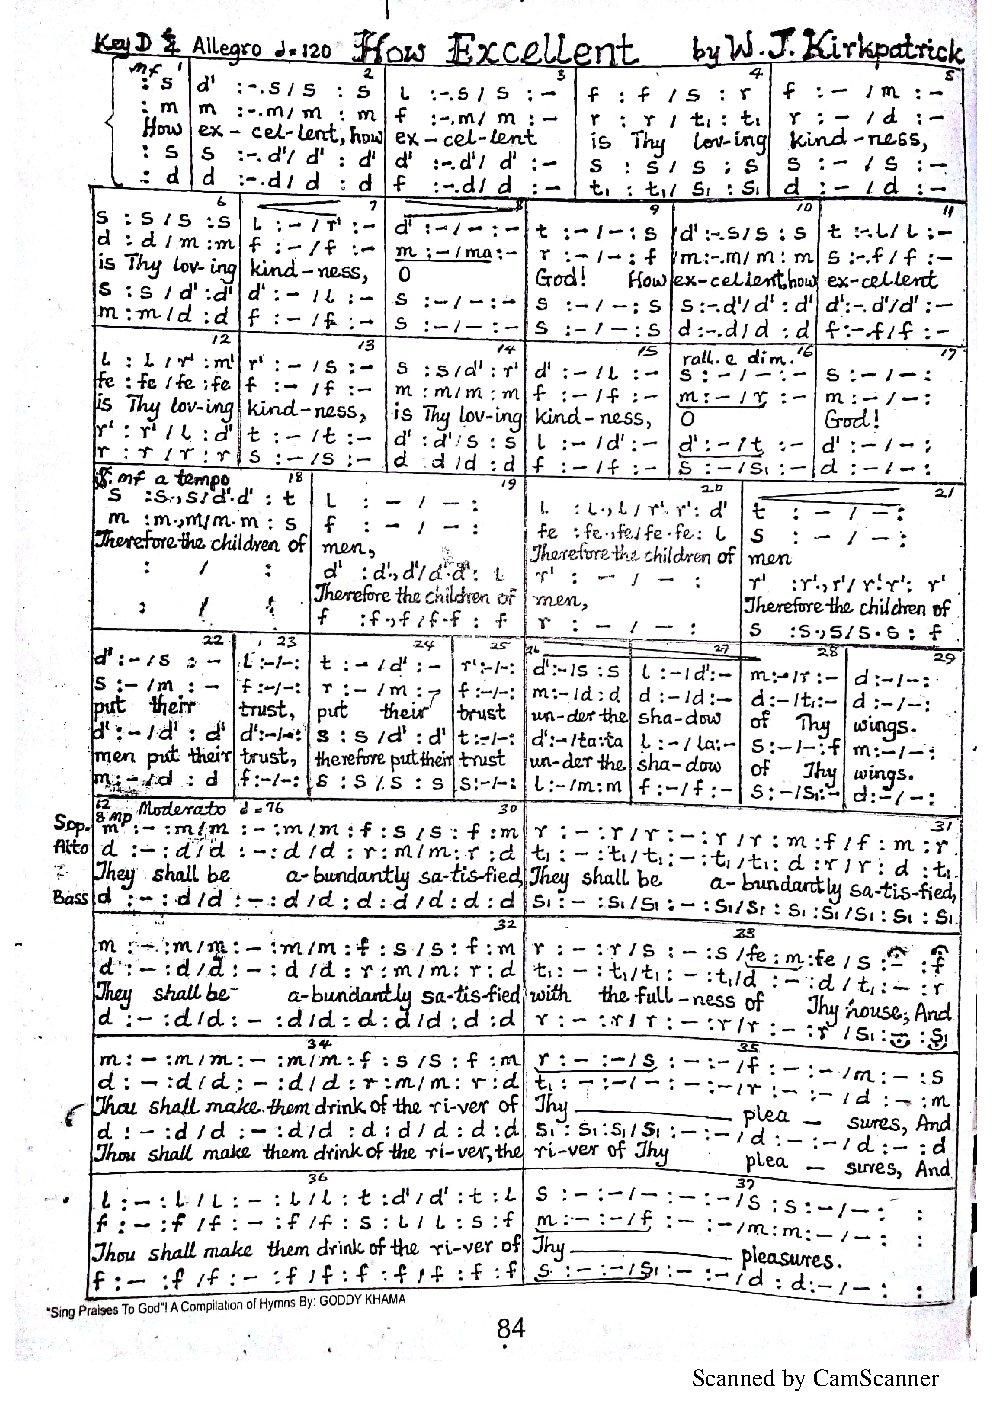 Key D 4/4 Allegro d=120 How Excellent by W. J. Kirkpatrick
mf 1 2 3 4 5
: s | d' :-.s / s : s | l :-.s / s : - | f : f / s : r | f : - / m : -
: m | m :-.m / m : m | f :-.m / m : - | r : r / t₁ : t₁ | r : - / d : -
How ex-cel-lent, how ex-cel-lent is Thy lov-ing kind-ness,
: s | s :-.d' / d' : d' | d' :-.d' / d' :- | s : s / s : s | s : - / s : -
: d | d :-.d / d : d | f :-.d / d :- | t₁ : t₁ / s₁ : s₁ | d : - / d : -
6 7 8 9 10 11
s : s / s : s | l : - / r' : - | d' : - / - : - | t : - / - : s | d' :-.s / s : s | t :-.l / l : -
d : d / m : m | f : - / f : - | m : - / ma : - | r : - / - : f | m :-.m / m : m | s :-.f / f : -
is Thy lov-ing kind-ness, O God! How ex-cellent, how ex-cellent
s : s / d' : d' | d' : - / l : - | s : - / - : - | s : - / - : s | s :-.d' / d' : d' | d' :-.d' / d' : -
m : m / d : d | f : - / f : - | s : - / - : - | s : - / - : s | d :-.d / d : d | f :-.f / f : -
12 13 14 15 rall. e dim. 16 17
l : l / r' : m' | r' : - / s : - | s : s / d' : r' | d' : - / l : - | s : - / - : - | s : - / - :
fe : fe / fe : fe | f : - / f : - | m : m / m : m | f : - / f : - | m : - / r : - | m : - / - :
is Thy lov-ing kind-ness, is Thy lov-ing kind-ness, O God!
r' : r' / l : d' | t : - / t : - | d' : d' / s : s | l : - / d' : - | d' : - / t : - | d' : - / - :
r : r / r : r | s : - / s : - | d : d / d : d | f : - / f : - | s : - / s₁ : - | d : - / - :
mf a tempo 18 19 20 21
s : s., s / d'. d' : t | l : - / - : | l : l., l / r'. r' : d' | t : - / - :
m : m., m / m. m : s | f : - / - : | fe : fe ., fe / fe . fe : l | s : - / - :
Therefore the children of men, Therefore the children of men
: / : | d' : d'., d' / d'. d' : l | r' : - / - : | r' : r'., r' / r'. r' : r'
Therefore the children of men, Therefore the children of
: / : | f : f ., f / f . f : f | r : - / - : | s : s ., s / s . s : f
22 23 24 25 26 27 28 29
d'' : - / s : - | l : - / - : | t : - / d' : - | r' : - / - : | d' : - / s : s | l : - / d' : - | m : - / r : - | d : - / - :
s : - / m : - | f : - / - : | r : - / m : - | f : - / - : | m : - / d : d | d : - / d : - | d : - / t₁ : - | d : - / - :
put their trust, put their trust un-der the sha-dow of Thy wings.
d' : - / d' : d' | d' : - / - : | s : s / d' : d' | t : - / - : | d' : - / ta : ta | l : - / la : - | s : - / - : f | m : - / - :
men put their trust, therefore put their trust un-der the sha-dow of Thy wings.
m : - / d : d | f : - / - : | s : s / s : s | s : - / - : | l : - / m : m | f : - / f : - | s : - / s₁ : - | d : - / - :
12/8 mp Moderato d=76 30 31
Sop. m : - : m / m : - : m / m : f : s / s : f : m | r : - : r / r : - : r / r : m : f / f : m : r
Alto d : - : d / d : - : d / d : r : m / m : r : d | t₁ : - : t₁ / t₁ : - : t₁ / t₁ : d : r / r : d : t₁
They shall be a-bundantly sa-tis-fied, They shall be a-bundantly sa-tis-fied,
Bass d : - : d / d : - : d / d : d : d / d : d : d | s₁ : - : s₁ / s₁ : - : s₁ / s₁ : s₁ : s₁ / s₁ : s₁ : s₁
32 33
m : - : m / m : - : m / m : f : s / s : f : m | r : - : r / s : - : s / fe : m : fe / s : - : f
d : - : d / d : - : d / d : r : m / m : r : d | t₁ : - : t₁ / t₁ : - : t₁ / d : - : d / t₁ : - : r
They shall be a-bundantly sa-tis-fied with the full-ness of Thy house; And
d : - : d / d : - : d / d : d : d / d : d : d | r : - : r / r : - : r / r : - : r / s₁ : - : s₁
34 35
m : - : m / m : - : m / m : f : s / s : f : m | r : - : - / s : - : - / f : - : - / m : - : s
d : - : d / d : - : d / d : r : m / m : r : d | t₁ : - : - / - : - : - / r : - : - / d : - : m
Thou shall make them drink of the ri-ver of Thy plea - sures, And
d : - : d / d : - : d / d : d : d / d : d : d | s₁ : s₁ : s₁ / s₁ : - : - / d : - : - / d : - : d
Thou shall make them drink of the ri-ver, the ri-ver of Thy plea - sures, And
36 37
l : - : l / l : - : l / l : t : d' / d' : t : l | s : - : - / - : - : - / s : s : - / - : :
f : - : f / f : - : f / f : s : l / l : s : f | m : - : - / f : - : - / m : m : - / - : :
Thou shall make them drink of the ri-ver of Thy pleasures.
f : - : f / f : - : f / f : f : f / f : f : f | s : - : - / s₁ : - : - / d : d : - / - : :
"Sing Praises To God"! A Compilation of Hymns By: GODDY KHAMA
84
Scanned by CamScanner